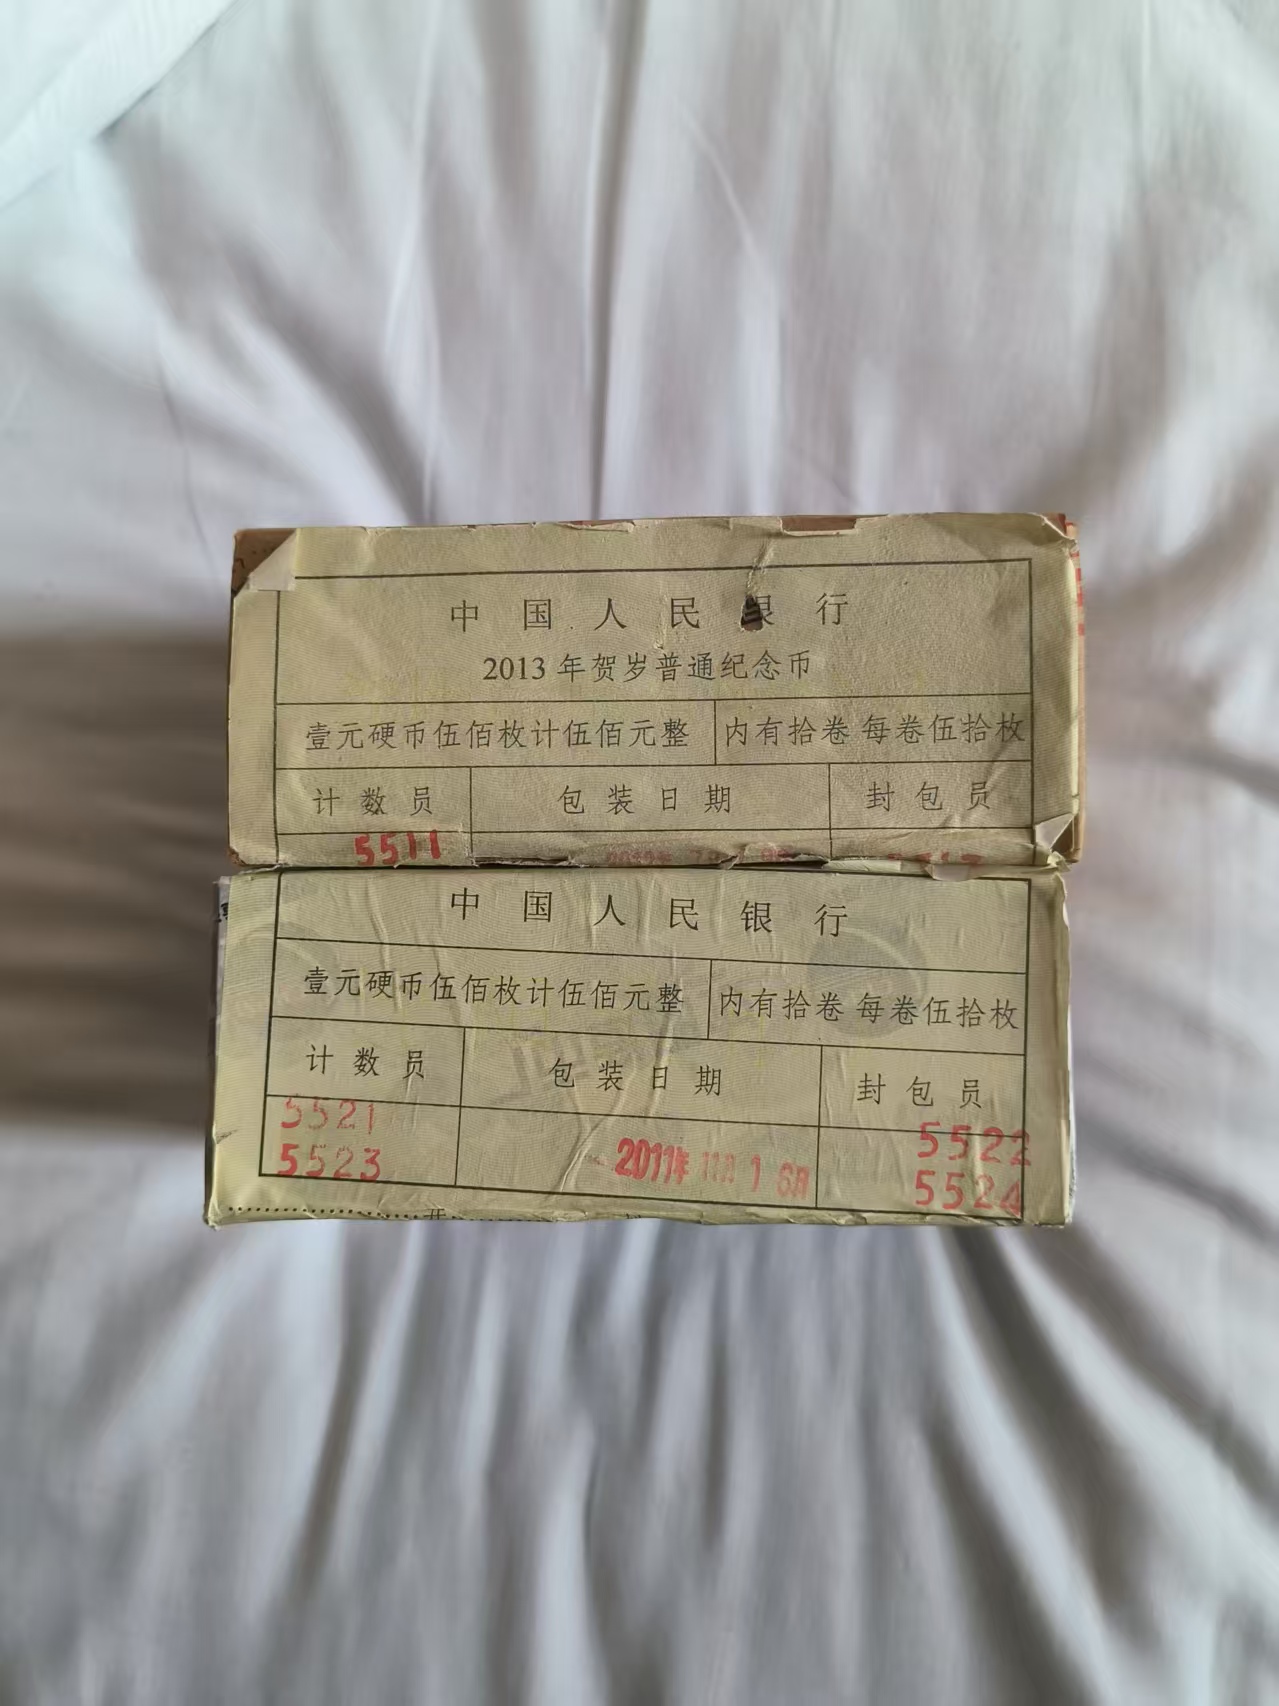 中国人民银行
2013年贺岁普通纪念币
壹元硬币伍佰枚计伍佰元整 内有拾卷 每卷伍拾枚
计数员 包装日期 封包员
5511
中国人民银行
壹元硬币伍佰枚计伍佰元整 内有拾卷 每卷伍拾枚
计数员 包装日期 封包员
5521 5522
5523 2011年11月16日 5524